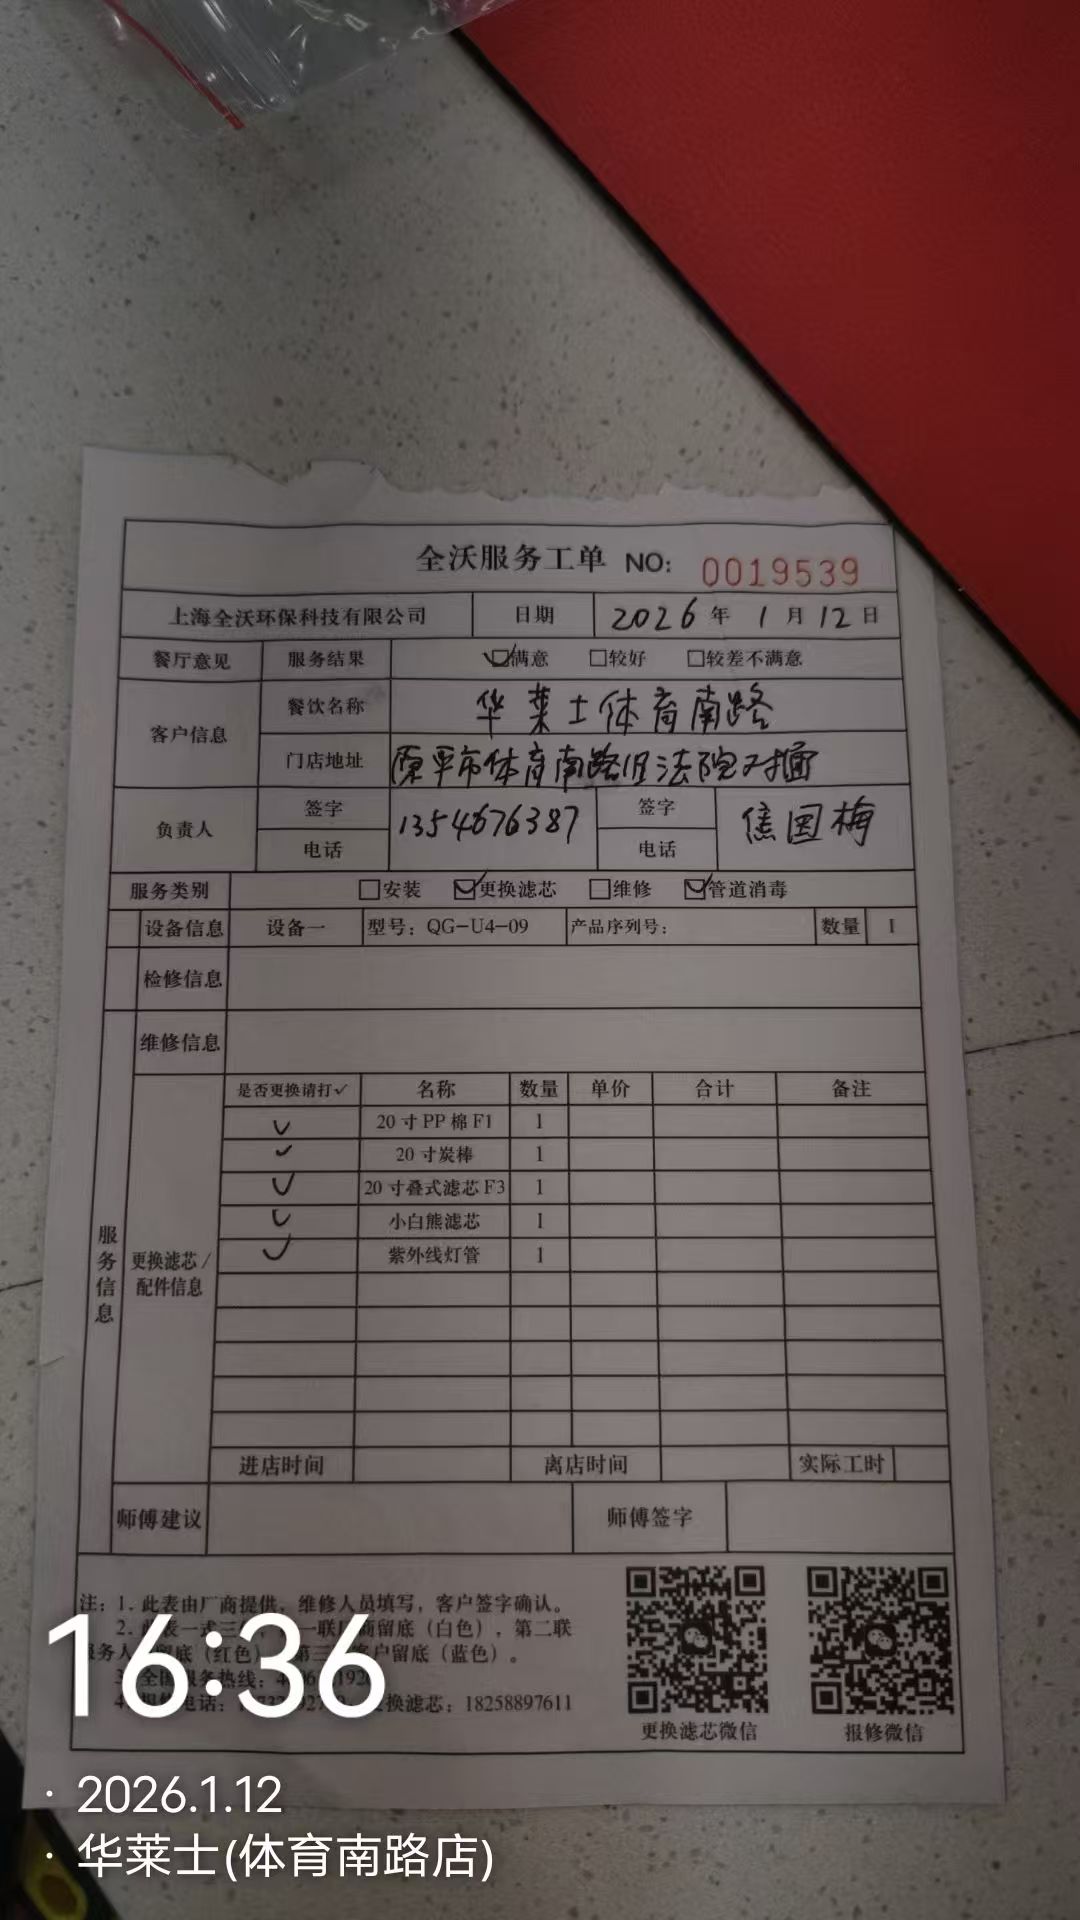 全沃服务工单 NO: 0019539
上海全沃环保科技有限公司 日期 2026年 1月12日
餐厅意见 服务结果 ☑满意 □较好 □较差不满意
客户信息 餐饮名称 华莱士体育南路
门店地址 原平市体育南路旧法院对面
负责人 签字 电话 1354676387 签字 电话 焦国梅
服务类别 □安装 ☑更换滤芯 □维修 ☑管道消毒
设备信息 设备一 型号：QG-U4-09 产品序列号： 数量 1
检修信息
维修信息
服务信息
更换滤芯/配件信息
是否更换请打✓ 名称 数量 单价 合计 备注
✓ 20寸PP棉F1 1
✓ 20寸炭棒 1
✓ 20寸叠式滤芯F3 1
✓ 小白熊滤芯 1
✓ 紫外线灯管 1
进店时间 离店时间 实际工时
师傅建议 师傅签字
注：1. 此表由厂商提供，维修人员填写，客户签字确认。
2. 表一式三 一联厂商留底（白色），第二联
服务人 留底（红色） 第三 客户留底（蓝色）。
全国服务热线：
电话： 更换滤芯：18258897611
更换滤芯微信 报修微信
16:36
· 2026.1.12
· 华莱士(体育南路店)